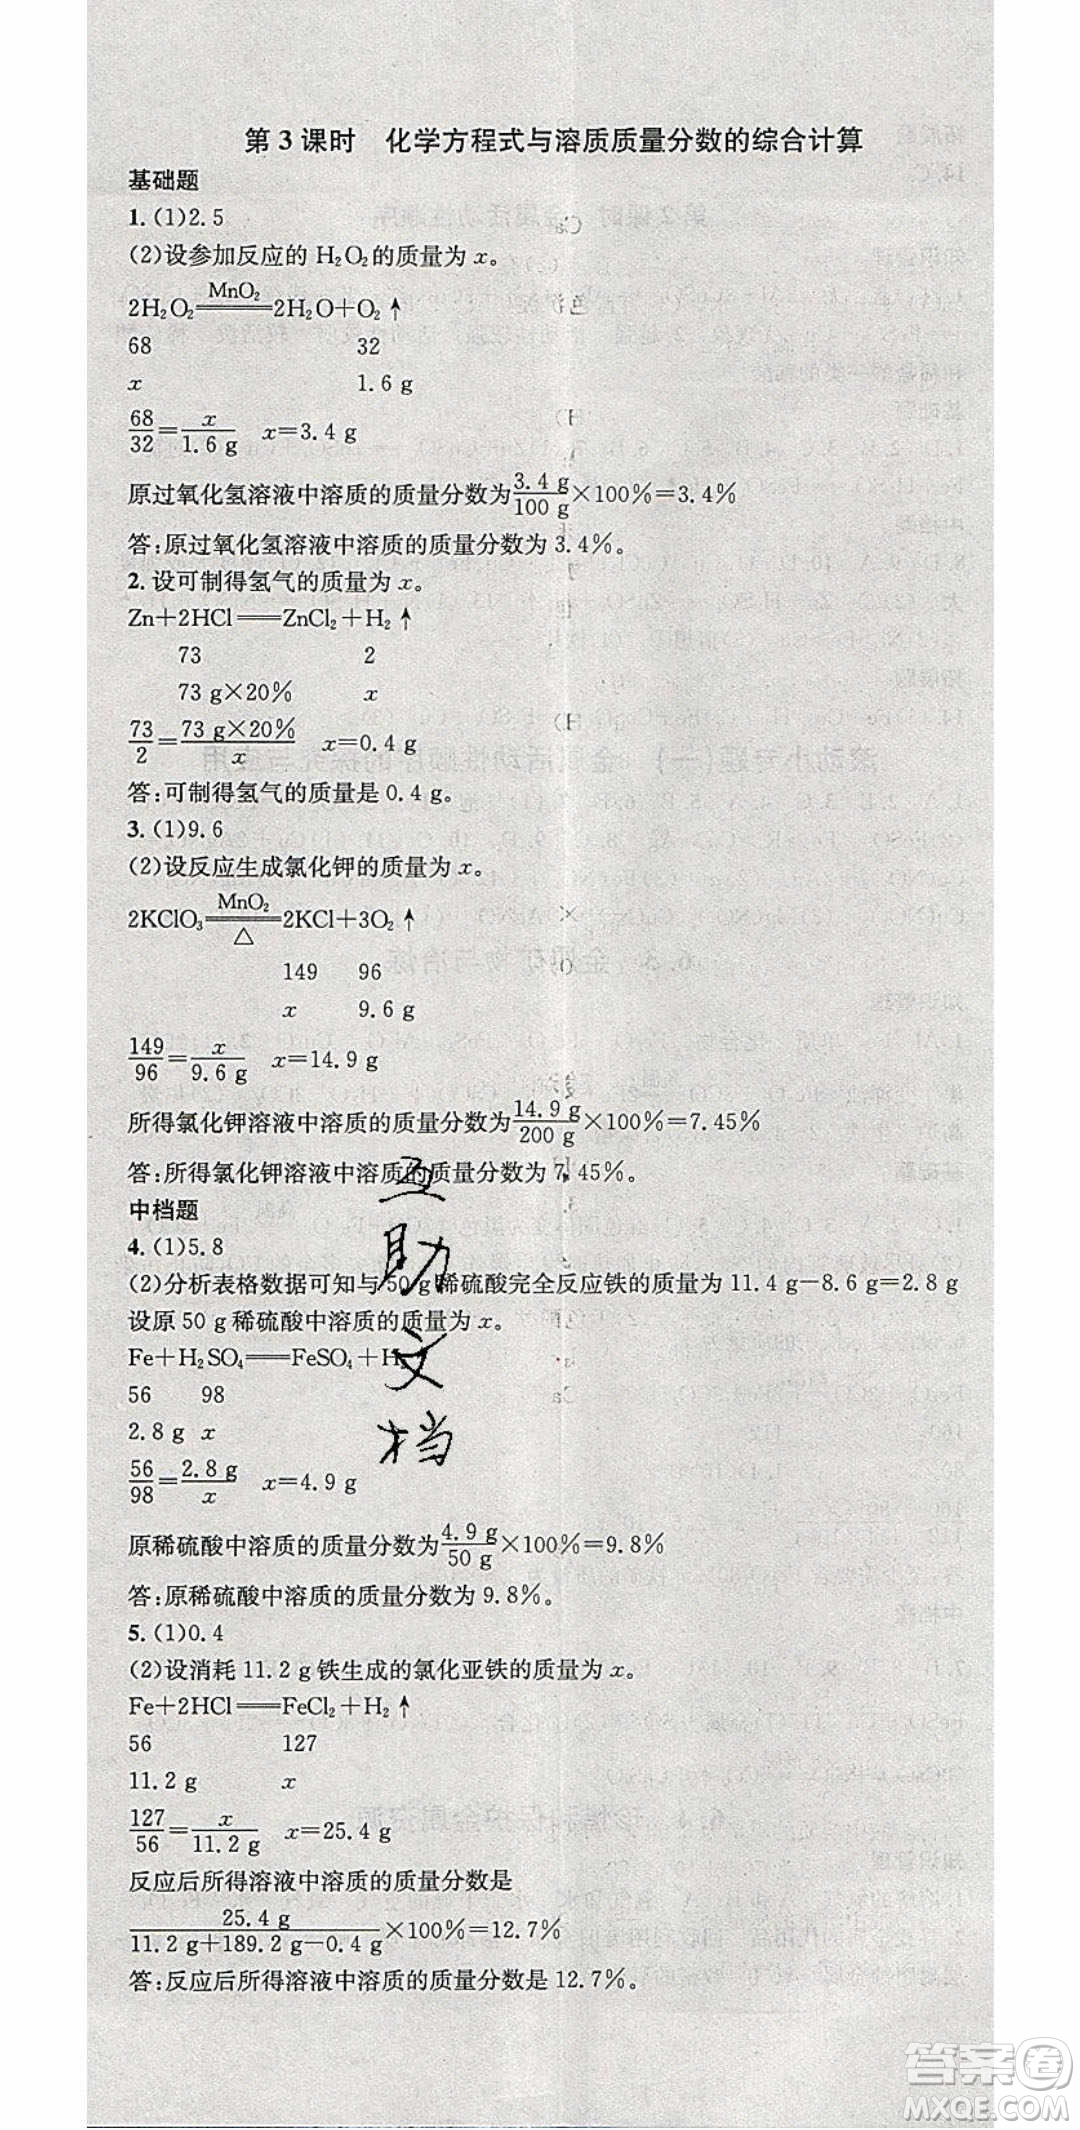 第3课时 化学方程式与溶质质量分数的综合计算
基础题
1.(1)2.5
(2)设参加反应的 H₂O₂的质量为 x。
2H₂O₂ =MnO₂= 2H₂O+O₂↑
68 32
x 1.6 g
68/32=x/1.6 g x=3.4 g
原过氧化氢溶液中溶质的质量分数为3.4 g/100 g×100%=3.4%
答:原过氧化氢溶液中溶质的质量分数为 3.4%。
2.设可制得氢气的质量为 x。
Zn+2HCl══ZnCl₂+H₂↑
73 2
73 g×20% x
73/2=73 g×20%/x x=0.4 g
答:可制得氢气的质量是 0.4 g。
3.(1)9.6
(2)设反应生成氯化钾的质量为 x。
2KClO₃ =MnO₂/△= 2KCl+3O₂↑
149 96
x 9.6 g
149/96=x/9.6 g x=14.9 g
所得氯化钾溶液中溶质的质量分数为14.9 g/200 g×100%=7.45%
答:所得氯化钾溶液中溶质的质量分数为 7.45%。
中档题
4.(1)5.8
(2)分析表格数据可知与 50 g 稀硫酸完全反应铁的质量为 11.4 g-8.6 g=2.8 g
设原 50 g 稀硫酸中溶质的质量为 x。
Fe+H₂SO₄══FeSO₄+H₂↑
56 98
2.8 g x
56/98=2.8 g/x x=4.9 g
原稀硫酸中溶质的质量分数为4.9 g/50 g×100%=9.8%
答:原稀硫酸中溶质的质量分数为 9.8%。
5.(1)0.4
(2)设消耗 11.2 g 铁生成的氯化亚铁的质量为 x。
Fe+2HCl══FeCl₂+H₂↑
56 127
11.2 g x
127/56=x/11.2 g x=25.4 g
反应后所得溶液中溶质的质量分数是
25.4 g/11.2 g+189.2 g-0.4 g×100%=12.7%
答:反应后所得溶液中溶质的质量分数是 12.7%。
互助文档
答案圈
MXQE.COM